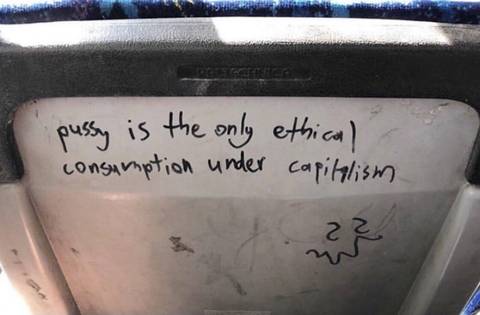 pussy is the only ethical
consumption under capitalism